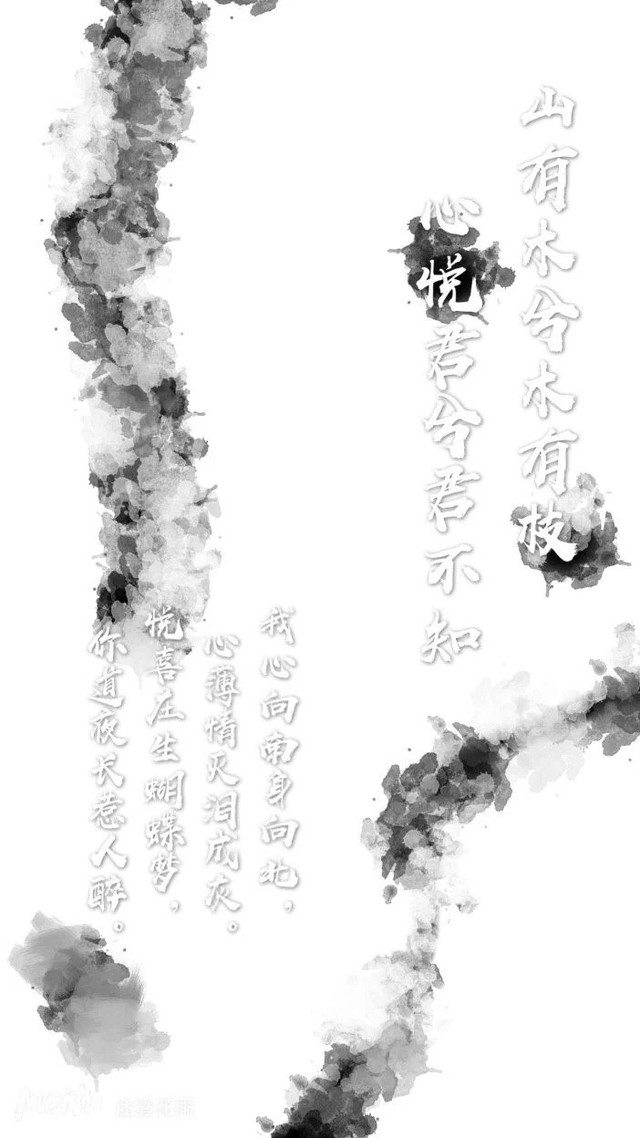 山有木兮木有枝
心悦君兮君不知
我心向南身向北，
心薄情灭泪成灰。
悦喜庄生蝴蝶梦，
你道夜长惹人醉。